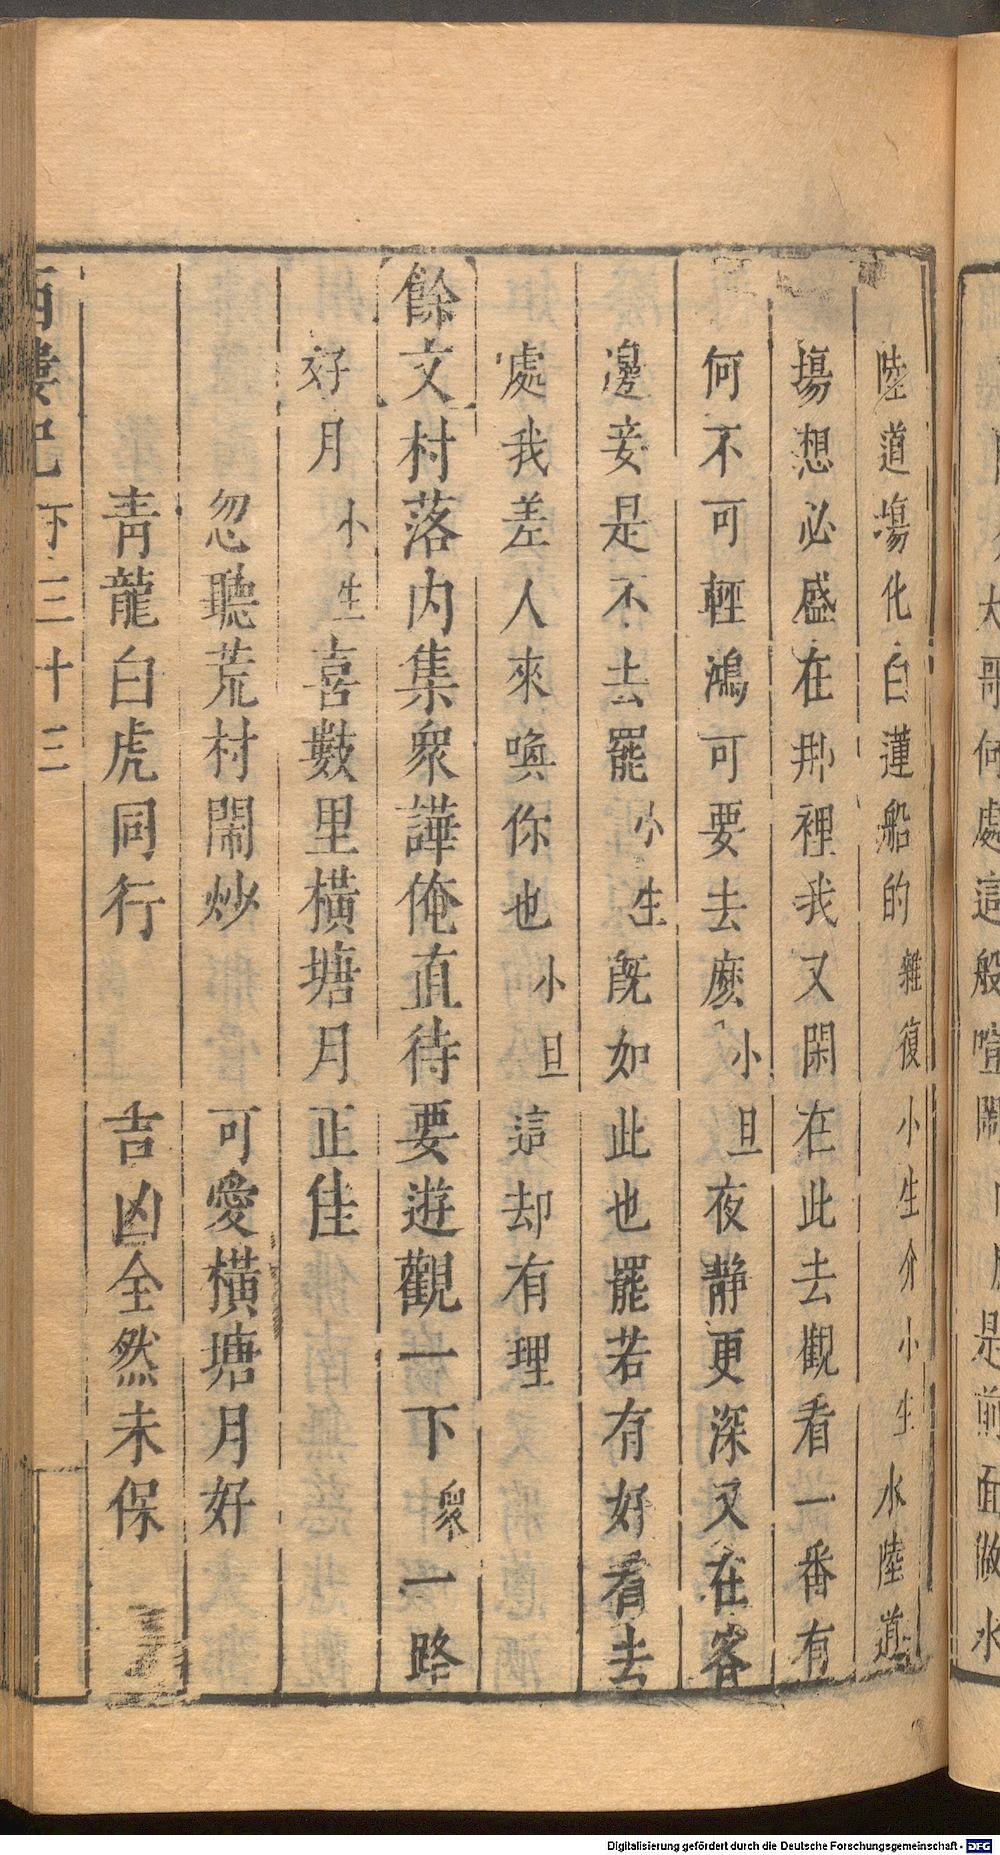 陸道塲化白蓮船的雜復小生介小生水陸道
塲想必盛在那裡我又閑在此去觀看一番有
何不可輕鴻可要去麽小旦夜靜更深又在客
邊妾是不去罷小生旣如此也罷若有好看去
處我差人來喚你也小旦這却有理
餘文村落内集衆譁俺直待要遊觀一下衆一路
好月小生喜數里橫塘月正佳
忽聽荒村閙炒 可愛橫塘月好
靑龍白虎同行 吉凶全然未保
西樓記 下 三十三
大哥何處這般喧閙
是前面做水
Digitalisierung gefördert durch die Deutsche Forschungsgemeinschaft - DFG